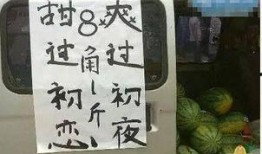 甜过初恋
8角1斤
爽过初夜